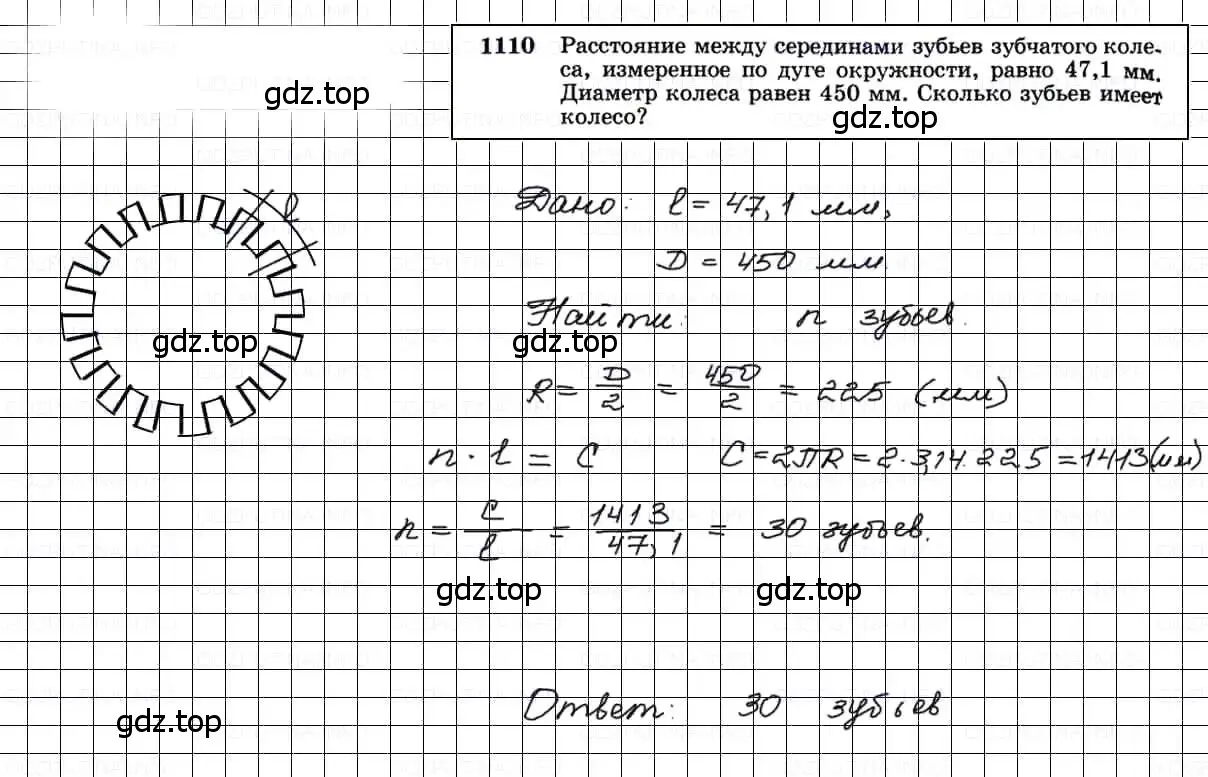 1110 Расстояние между серединами зубьев зубчатого коле-
са, измеренное по дуге окружности, равно 47,1 мм.
Диаметр колеса равен 450 мм. Сколько зубьев имеет
колесо?
gdz.top
gdz.top
l
Дано: l = 47,1 мм,
D = 450 мм.
Найти: n зубьев.
gdz.top
gdz.top
R = D/2 = 450/2 = 225 (мм)
n · l = C C = 2πR = 2 · 3,14 · 225 = 1413 (мм)
n = C/l = 1413/47,1 = 30 зубьев.
gdz.top
gdz.top
Ответ: 30 зубьев
gdz.top